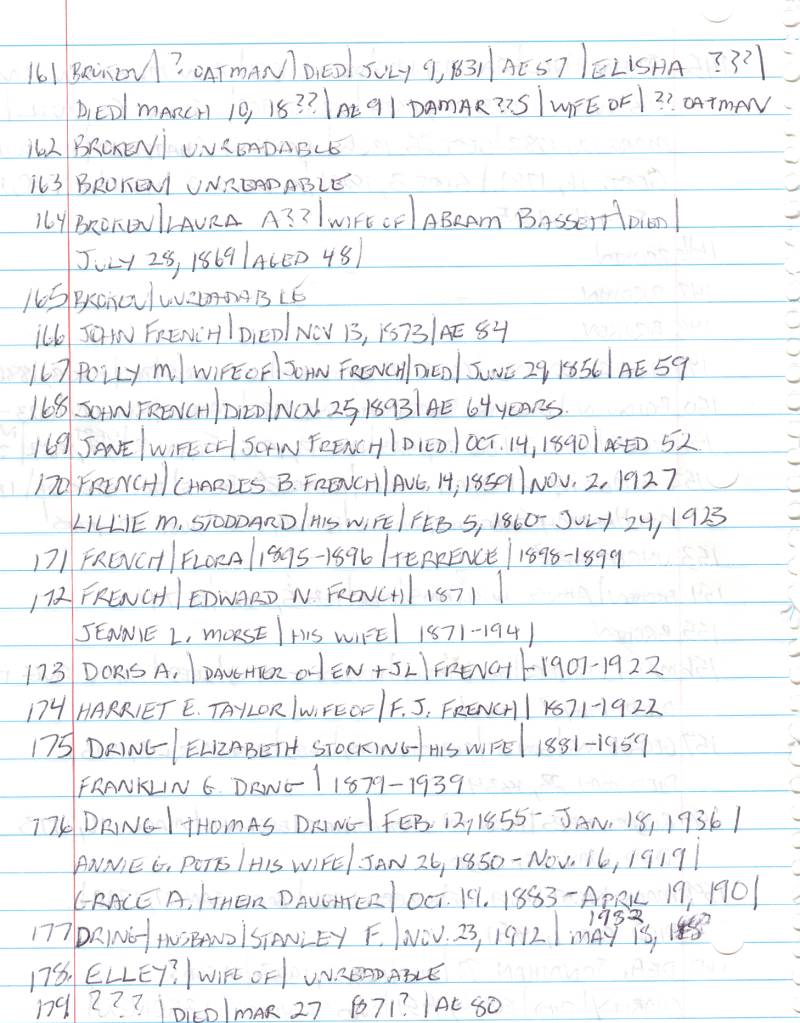 161 BROKEN | ? OATMAN | DIED | JULY 9, 1831 | AE 57 | ELISHA ??? |
DIED | MARCH 10, 18?? | AE 9 | DAMAR??S | WIFE OF | ?? OATMAN
162 BROKEN | UNREADABLE
163 BROKEN | UNREADABLE
164 BROKEN | LAURA A?? | WIFE OF | ABRAM BASSETT | DIED |
JULY 28, 1869 | AGED 48 |
165 BROKEN | UNREADABLE
166 JOHN FRENCH | DIED | NOV 13, 1873 | AE 84
167 POLLY M. | WIFE OF | JOHN FRENCH | DIED | JUNE 29, 1856 | AE 59
168 JOHN FRENCH | DIED | NOV. 25, 1893 | AE 64 YEARS.
169 JANE | WIFE OF | JOHN FRENCH | DIED | OCT. 14, 1890 | AGED 52
170 FRENCH | CHARLES B. FRENCH | AUG. 14, 1859 | NOV. 2, 1927
LILLIE M. STODDARD | HIS WIFE | FEB 5, 1860- JULY 24, 1923
171 FRENCH | FLORA | 1895-1896 | TERRENCE | 1898-1899
172 FRENCH | EDWARD N. FRENCH | 1871 |
JENNIE L. MORSE | HIS WIFE | 1871-1941
173 DORIS A. | DAUGHTER OF | EN + JL | FRENCH | -1907-1922
174 HARRIET E. TAYLOR | WIFE OF | F. J. FRENCH | 1871-1922
175 DRING | ELIZABETH STOCKING | HIS WIFE | 1881-1959
FRANKLIN G. DRING | 1879-1939
176 DRING | THOMAS DRING | FEB. 12, 1855- JAN. 18, 1936 |
ANNIE G. POTTS | HIS WIFE | JAN 26, 1850 - NOV. 16, 1919 |
GRACE A. | THEIR DAUGHTER | OCT. 19. 1883 - APRIL 19, 1901
177 DRING | HUSBAND | STANLEY F. | NOV. 23, 1912 | MAY 18, 1932
178. ELLEY? | WIFE OF | UNREADABLE
179 ??? | DIED | MAR 27 1871? | AE 80